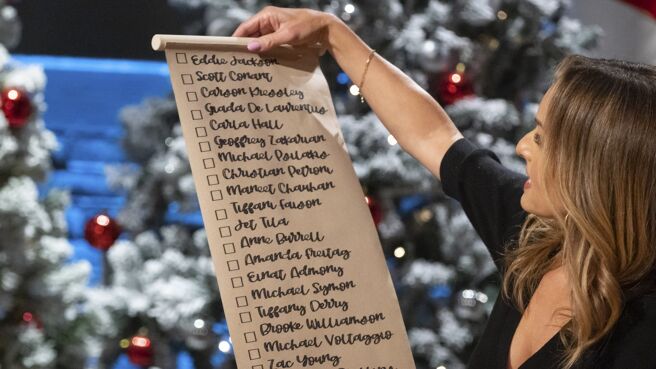 Eddie Jackson
Scott Conant
Carson Kressley
Giada De Laurentiis
Carla Hall
Geoffrey Zakarian
Michael Poulako
Christian Petroni
Maneet Chauhan
Tiffani Faison
Jet Tila
Anne Burrell
Amanda Freitag
Einat Admony
Michael Symon
Tiffany Derry
Brooke Williamson
Michael Voltaggio
Zac Young